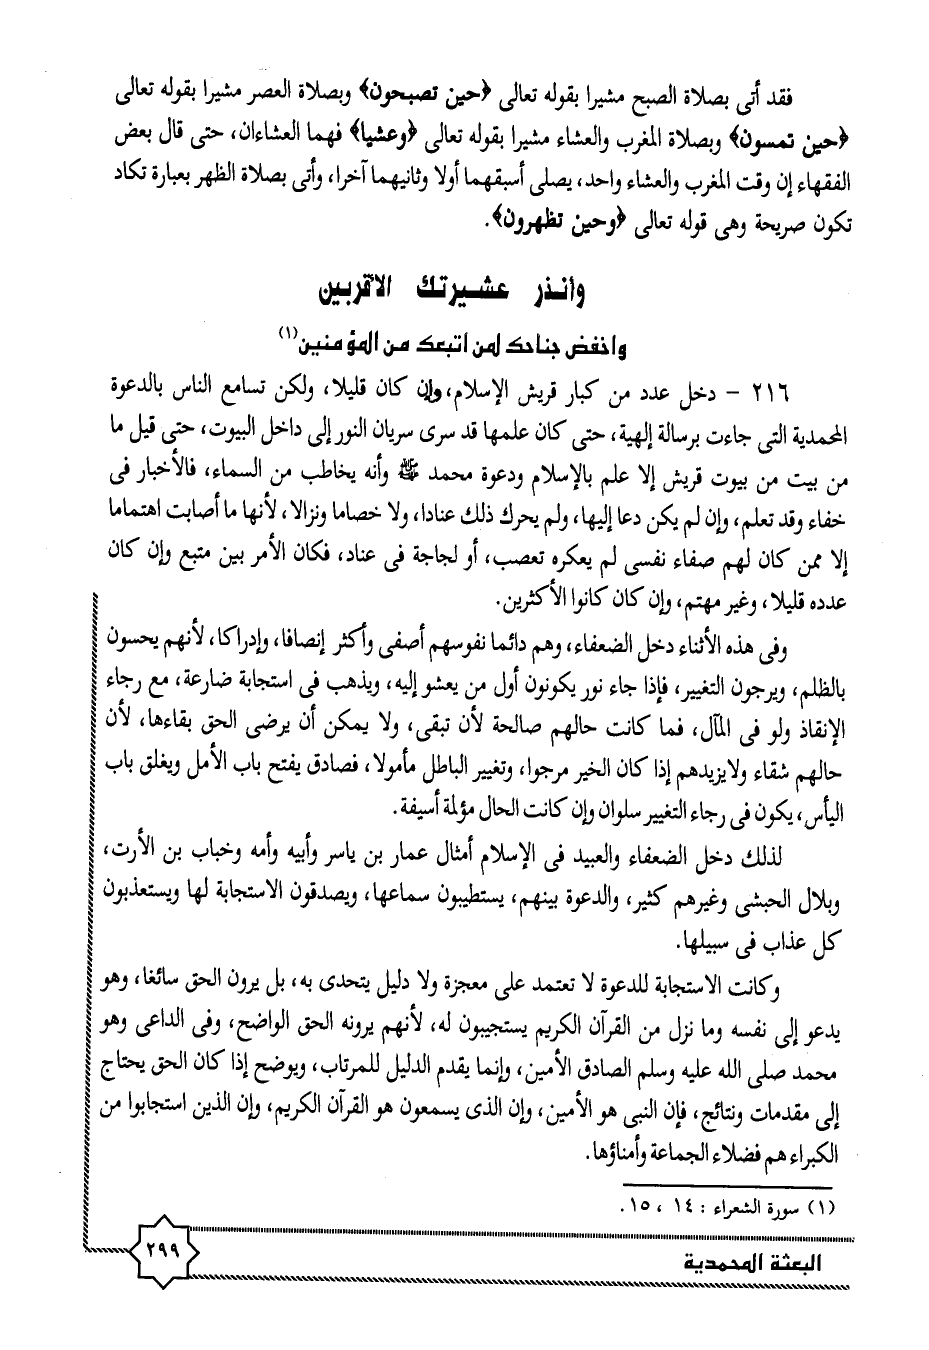 فقد أتى بصلاة الصبح مشيرا بقوله تعالى ﴿حين تصبحون﴾ وبصلاة العصر مشيرا بقوله تعالى
﴿حين تمسون﴾ وبصلاة المغرب والعشاء مشيرا بقوله تعالى ﴿وعشيا﴾ فهما العشاءان، حتى قال بعض
الفقهاء إن وقت المغرب والعشاء واحد، يصلى أسبقهما أولا وثانيهما آخرا، وأتى بصلاة الظهر بعبارة تكاد
تكون صريحة وهى قوله تعالى ﴿وحين تظهرون﴾.
وأنذر عشيرتك الأقربين
واخفض جناحك لمن اتبعك من المؤمنين(١)
٢١٦ - دخل عدد من كبار قريش الإسلام، وإن كان قليلا، ولكن تسامع الناس بالدعوة
المحمدية التى جاءت برسالة إلهية، حتى كان علمها قد سرى سريان النور إلى داخل البيوت، حتى قيل ما
من بيت من بيوت قريش إلا علم بالإسلام ودعوة محمد ﷺ وأنه يخاطب من السماء، فالأخبار فى
خفاء وقد تعلم، وإن لم يكن دعا إليها، ولم يحرك ذلك عنادا، ولا خصاما ونزالا، لأنها ما أصابت اهتماما
إلا ممن كان لهم صفاء نفسى لم يعكره تعصب، أو لجاجة فى عناد، فكان الأمر بين متبع وإن كان
عدده قليلا، وغير مهتم، وإن كان كانوا الأكثرين.
وفى هذه الأثناء دخل الضعفاء، وهم دائما نفوسهم أصفى وأكثر إنصافا، وإدراكا، لأنهم يحسون
بالظلم، ويرجون التغيير، فإذا جاء نور يكونون أول من يعشو إليه، ويذهب فى استجابة ضارعة، مع رجاء
الإنقاذ ولو فى المآل، فما كانت حالهم صالحة لأن تبقى، ولا يمكن أن يرضى الحق بقاءها، لأن
حالهم شقاء ولا يزيدهم إذا كان الخير مرجوا، وتغيير الباطل مأمولا، فصادق يفتح باب الأمل ويغلق باب
اليأس، يكون فى رجاء التغيير سلوان وإن كانت الحال مؤلمة أسيفة.
لذلك دخل الضعفاء والعبيد فى الإسلام أمثال عمار بن ياسر وأبيه وأمه وخباب بن الأرت،
وبلال الحبشى وغيرهم كثير، والدعوة بينهم، يستطيبون سماعها، ويصدقون الاستجابة لها ويستعذبون
كل عذاب فى سبيلها.
وكانت الاستجابة للدعوة لا تعتمد على معجزة ولا دليل يتحدى به، بل يرون الحق سائغا، وهو
يدعو إلى نفسه وما نزل من القرآن الكريم يستجيبون له، لأنهم يرونه الحق الواضح، وفى الداعى وهو
محمد صلى الله عليه وسلم الصادق الأمين، وإنما يقدم الدليل للمرتاب، ويوضح إذا كان الحق يحتاج
إلى مقدمات ونتائج، فإن النبى هو الأمين، وإن الذى يسمعون هو القرآن الكريم، وإن الذين استجابوا من
الكبراء هم فضلاء الجماعة وأمناؤها.
(١) سورة الشعراء : ١٤ ، ١٥ .
البعثة المحمدية
٢٩٩